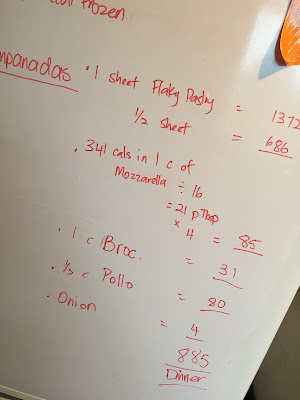 Frozen
mpanadas • 1 sheet Flaky Pastry = 1372
1/2 sheet = 686
• 341 cals in 1 c of
Mozzarella ÷ 16
= 21 p Tbsp
× 4 = 85
• 1 c Broc. = 31
• 1/3 c Pollo = 80
• Onion = 4
885
Dinner